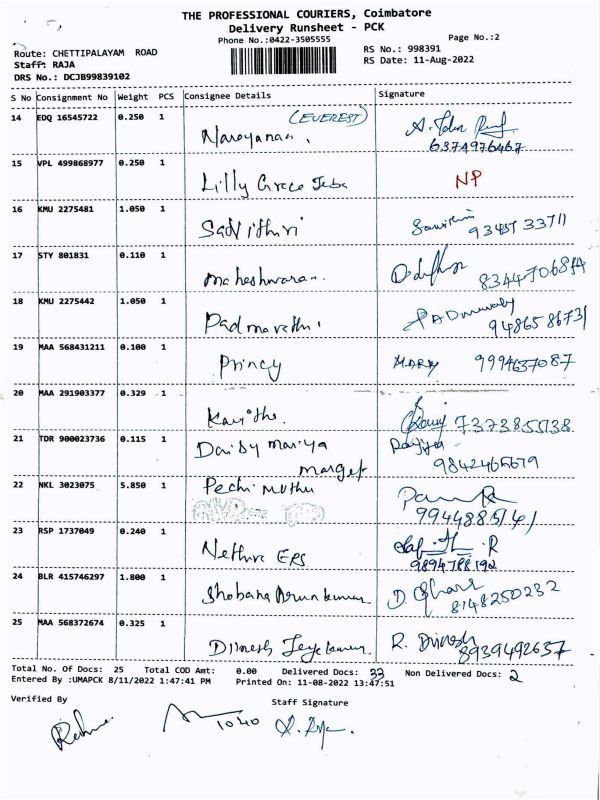 THE PROFESSIONAL COURIERS, Coimbatore
Delivery Runsheet - PCK
Phone No.:0422-3505555
Page No.:2
Route: CHETTIPALAYAM ROAD
RS No.: 998391
Staff: RAJA
RS Date: 11-Aug-2022
DRS No.: DCJB99839102
S No Consignment No Weight PCS Consignee Details Signature
14 EDQ 16545722 0.250 1 (EVEREST)
Narayanan. 6374976467
15 VPL 499868977 0.250 1
Lilly Grace Jeba NP
16 KMU 2275481 1.050 1
Savithri
17 STY 801831 0.110 1
maheshwaran. 8344706814
18 KMU 2275442 1.050 1
Padmavathi
19 MAA 568431211 0.100 1
Princy MARY 9994637087
20 MAA 291903377 0.329 1
Kavitha. 7373855138
21 TDR 900023736 0.115 1
Daisy mariya
marget 9842465679
22 NKL 3023075 5.850 1 Pechi muthu
9944885141
23 RSP 1737049 0.240 1
Nethra EPS 9894788192
24 BLR 415746297 1.800 1
Shobana Arunkumar 8148250232
25 MAA 568372674 0.325 1
Dinesh Jeyakumar R. Dinesh 8939492637
Total No. of Docs: 25 Total COD Amt: 0.00 Delivered Docs: 33 Non Delivered Docs: 2
Entered By :UMAPCK 8/11/2022 1:47:41 PM Printed On: 11-08-2022 13:47:51
Verified By Staff Signature
1040